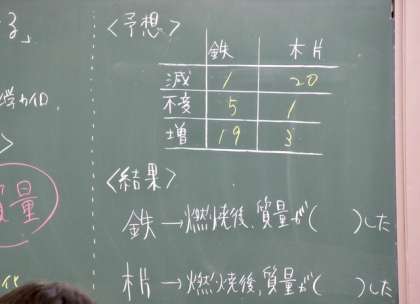 る」
<予想>
鉄 木片
減 1 20
不変 5 1
増 19 3
>
質量
<結果>
鉄→燃焼後、質量が( )した
木片→燃焼後、質量が( )した